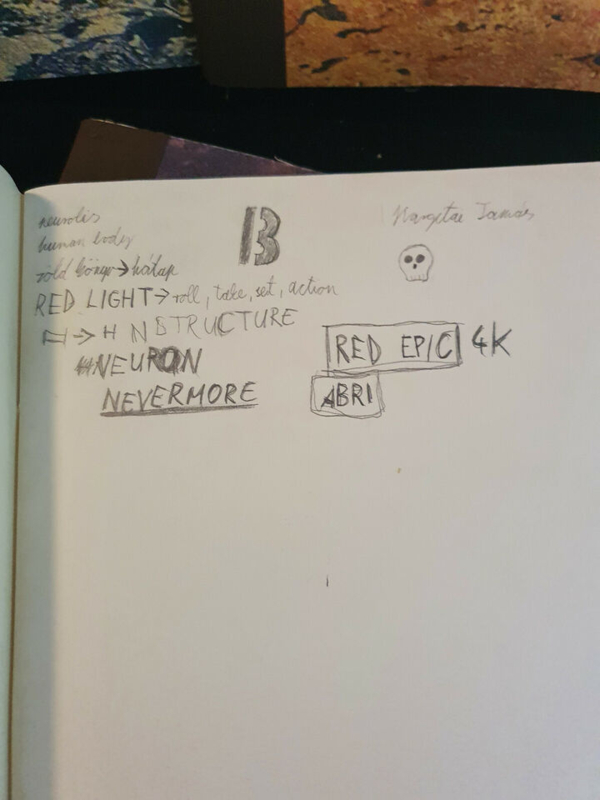 human body
zöld könyv → hátlap
RED LIGHT → roll, take, set, action
→ H N STRUCTURE
NEURON
NEVERMORE
13
Tamás
RED EPIC 4K
ABRI